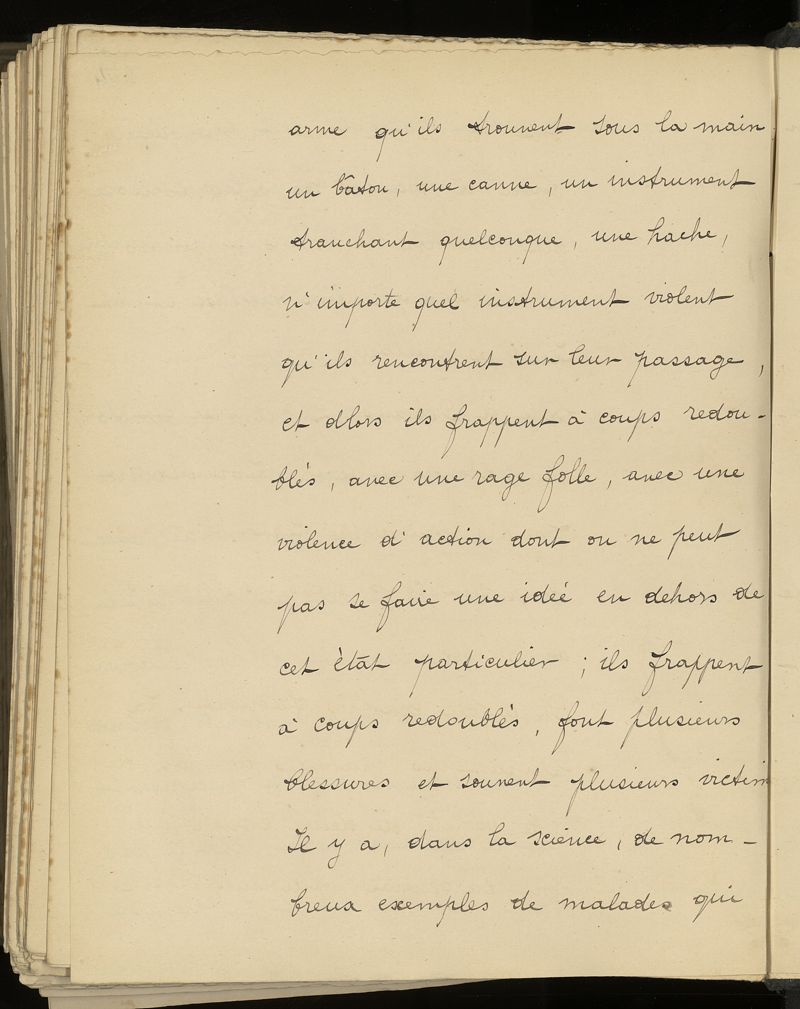 arme qu'ils trouvent sous la main
un bâton, une canne, un instrument
tranchant quelconque, une hache,
n'importe quel instrument violent
qu'ils rencontrent sur leur passage,
et alors ils frappent à coups redou-
blés, avec une rage folle, avec une
violence d'action dont on ne peut
pas se faire une idée en dehors de
cet état particulier ; ils frappent
à coups redoublés, font plusieurs
blessures et souvent plusieurs victim
Il y a, dans la science, de nom-
breux exemples de malades qui